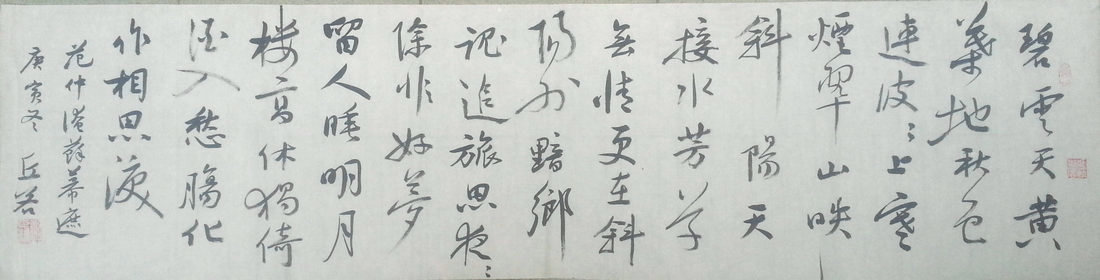 碧雲天黄
葉地秋色
連波〻上寒
煙翠山映
斜陽天
接水芳草
無情更在斜
陽外黯鄉
魂追旅思夜〻
除非好夢
留人睡明月
楼高休獨倚
酒入愁腸化
作相思淚
范仲淹蘇幕遮
庚寅冬 丘